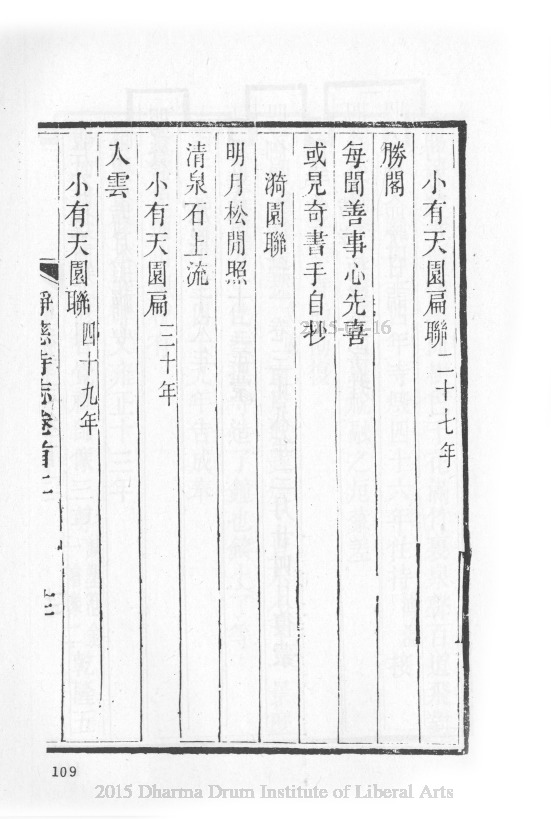 小有天園扁聯二十七年
勝閣
每聞善事心先喜
或見奇書手自抄
漪園聯
明月松間照
清泉石上流
小有天園扁三十年
入雲
小有天園聯四十九年
淨慈寺志卷首二
2015-07-16
109
2015 Dharma Drum Institute of Liberal Arts